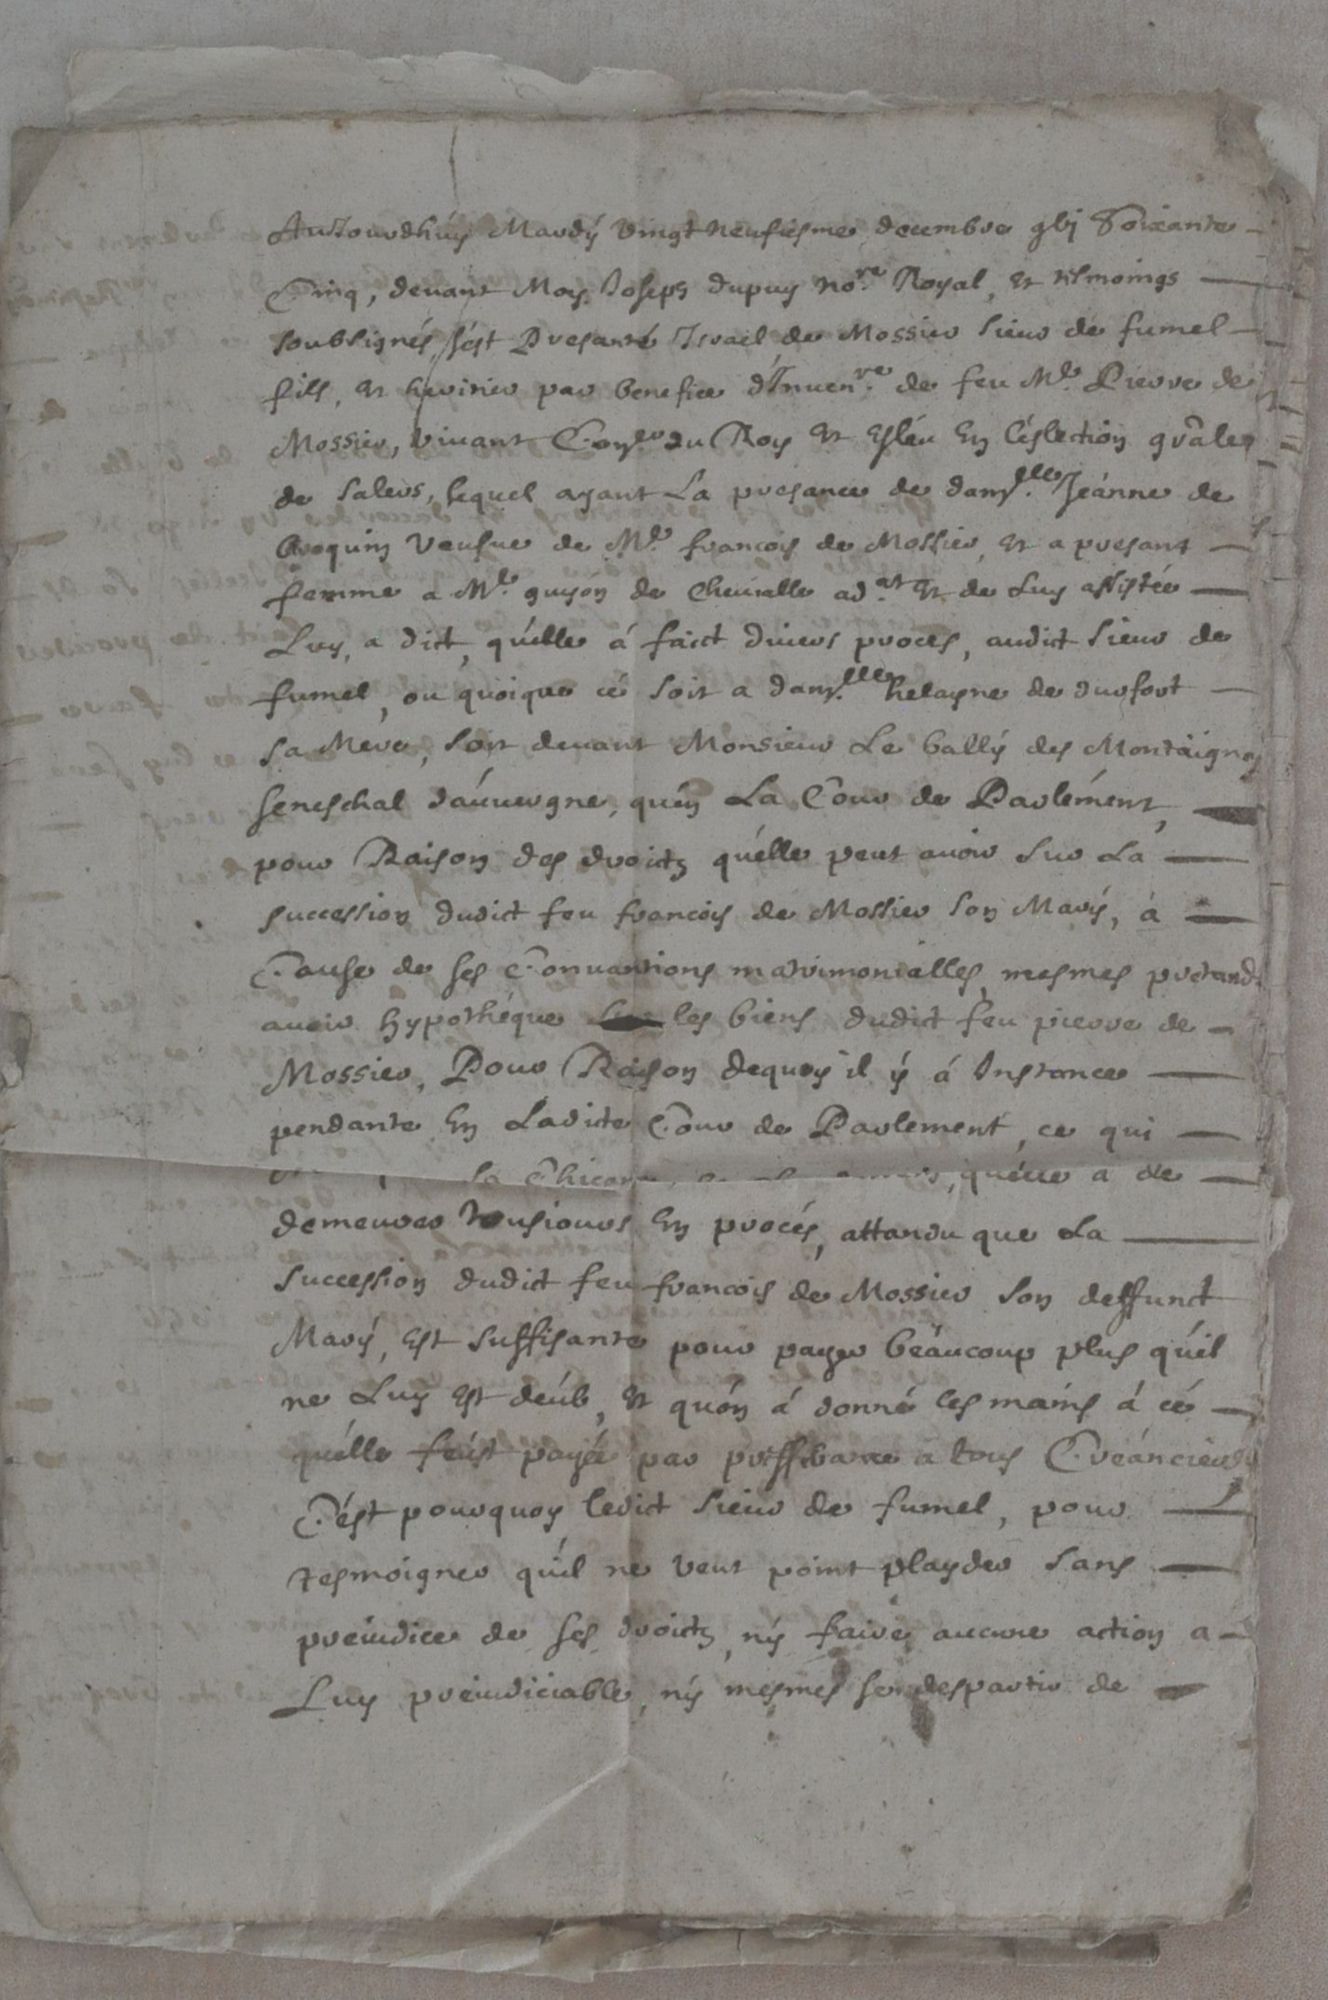 Auiourdhuy Mardy vingt neufiesme decembre gbj Soixante
Cinq, deuant Moy Joseps dupuy no.re Royal, et tesmoings
soubsignés, s'est Presanté Israel de Mossier sieur de fumel
fils, et heritier par benefice d'Inuen.re de feu Mr. Pierre de
Mossier, viuant Con.er du Roy et Esleu En l'eslection gnãle
de salers, lequel ayant la presance de dam.lle Jeanne de
veufue de Mr. francois de Mossier, et a presant
femme a Mr. guyon de Cheuialle ad.at et de Luy assistée
Luy, a dict, qu'elle á faict diuers proces, audict sieur de
fumel, ou quoique ce soit a dam.lle helayne de durfort
sa Mere, soit deuant Monsieur Le bally des Montaignes
seneschal d'auuergne, qu'en La Cour de Parlément,
pour Raison des droictz qu'elle peut auoir sur La
succession dudict feu francois de Mossier son Mary, á
Cause de ses Conuantions matrimonialles, mesmes pretand
auoir hypothéque sur les biens dudict feu pierre de
Mossier, Pour Raison dequoy il ý á Instance
pendante En Ladicte Cour de Parlement, ce qui
la quelle a de
demeurer tousiours En procés, attandu que La
succession dudict feu francois de Mossier son deffunct
Mary, Est suffisante pour payer beaucoup plus qu'il
ne Luy Est deúb, et qu'on á donné les mains á cé
qu'elle feust payée par prefferance a tous Creánciers
C'est pourquoy ledict sieur de fumel, pour
tesmoigner qu'il ne veut point playder sans
preiudice de ses droictz, ny faire aucune action a
Luy preiudiciable, ny mesmes se despartir de